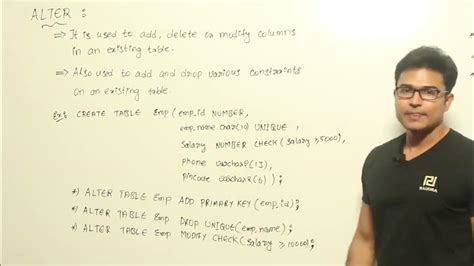 ALTER :
⇒ It is used to add, delete or modify columns
in an existing table.
⇒ Also used to add and drop various constraints
on an existing table.
Ex:- CREATE TABLE Emp( emp_id NUMBER,
emp_name char(10) UNIQUE,
salary NUMBER CHECK(salary >5000),
phone varchar2(13),
pincode varchar2(6));
*) ALTER TABLE Emp ADD PRIMARY KEY (emp_id);
*) ALTER TABLE Emp DROP UNIQUE(emp_name);
*) ALTER TABLE Emp MODIFY CHECK(salary ≥ 10000);